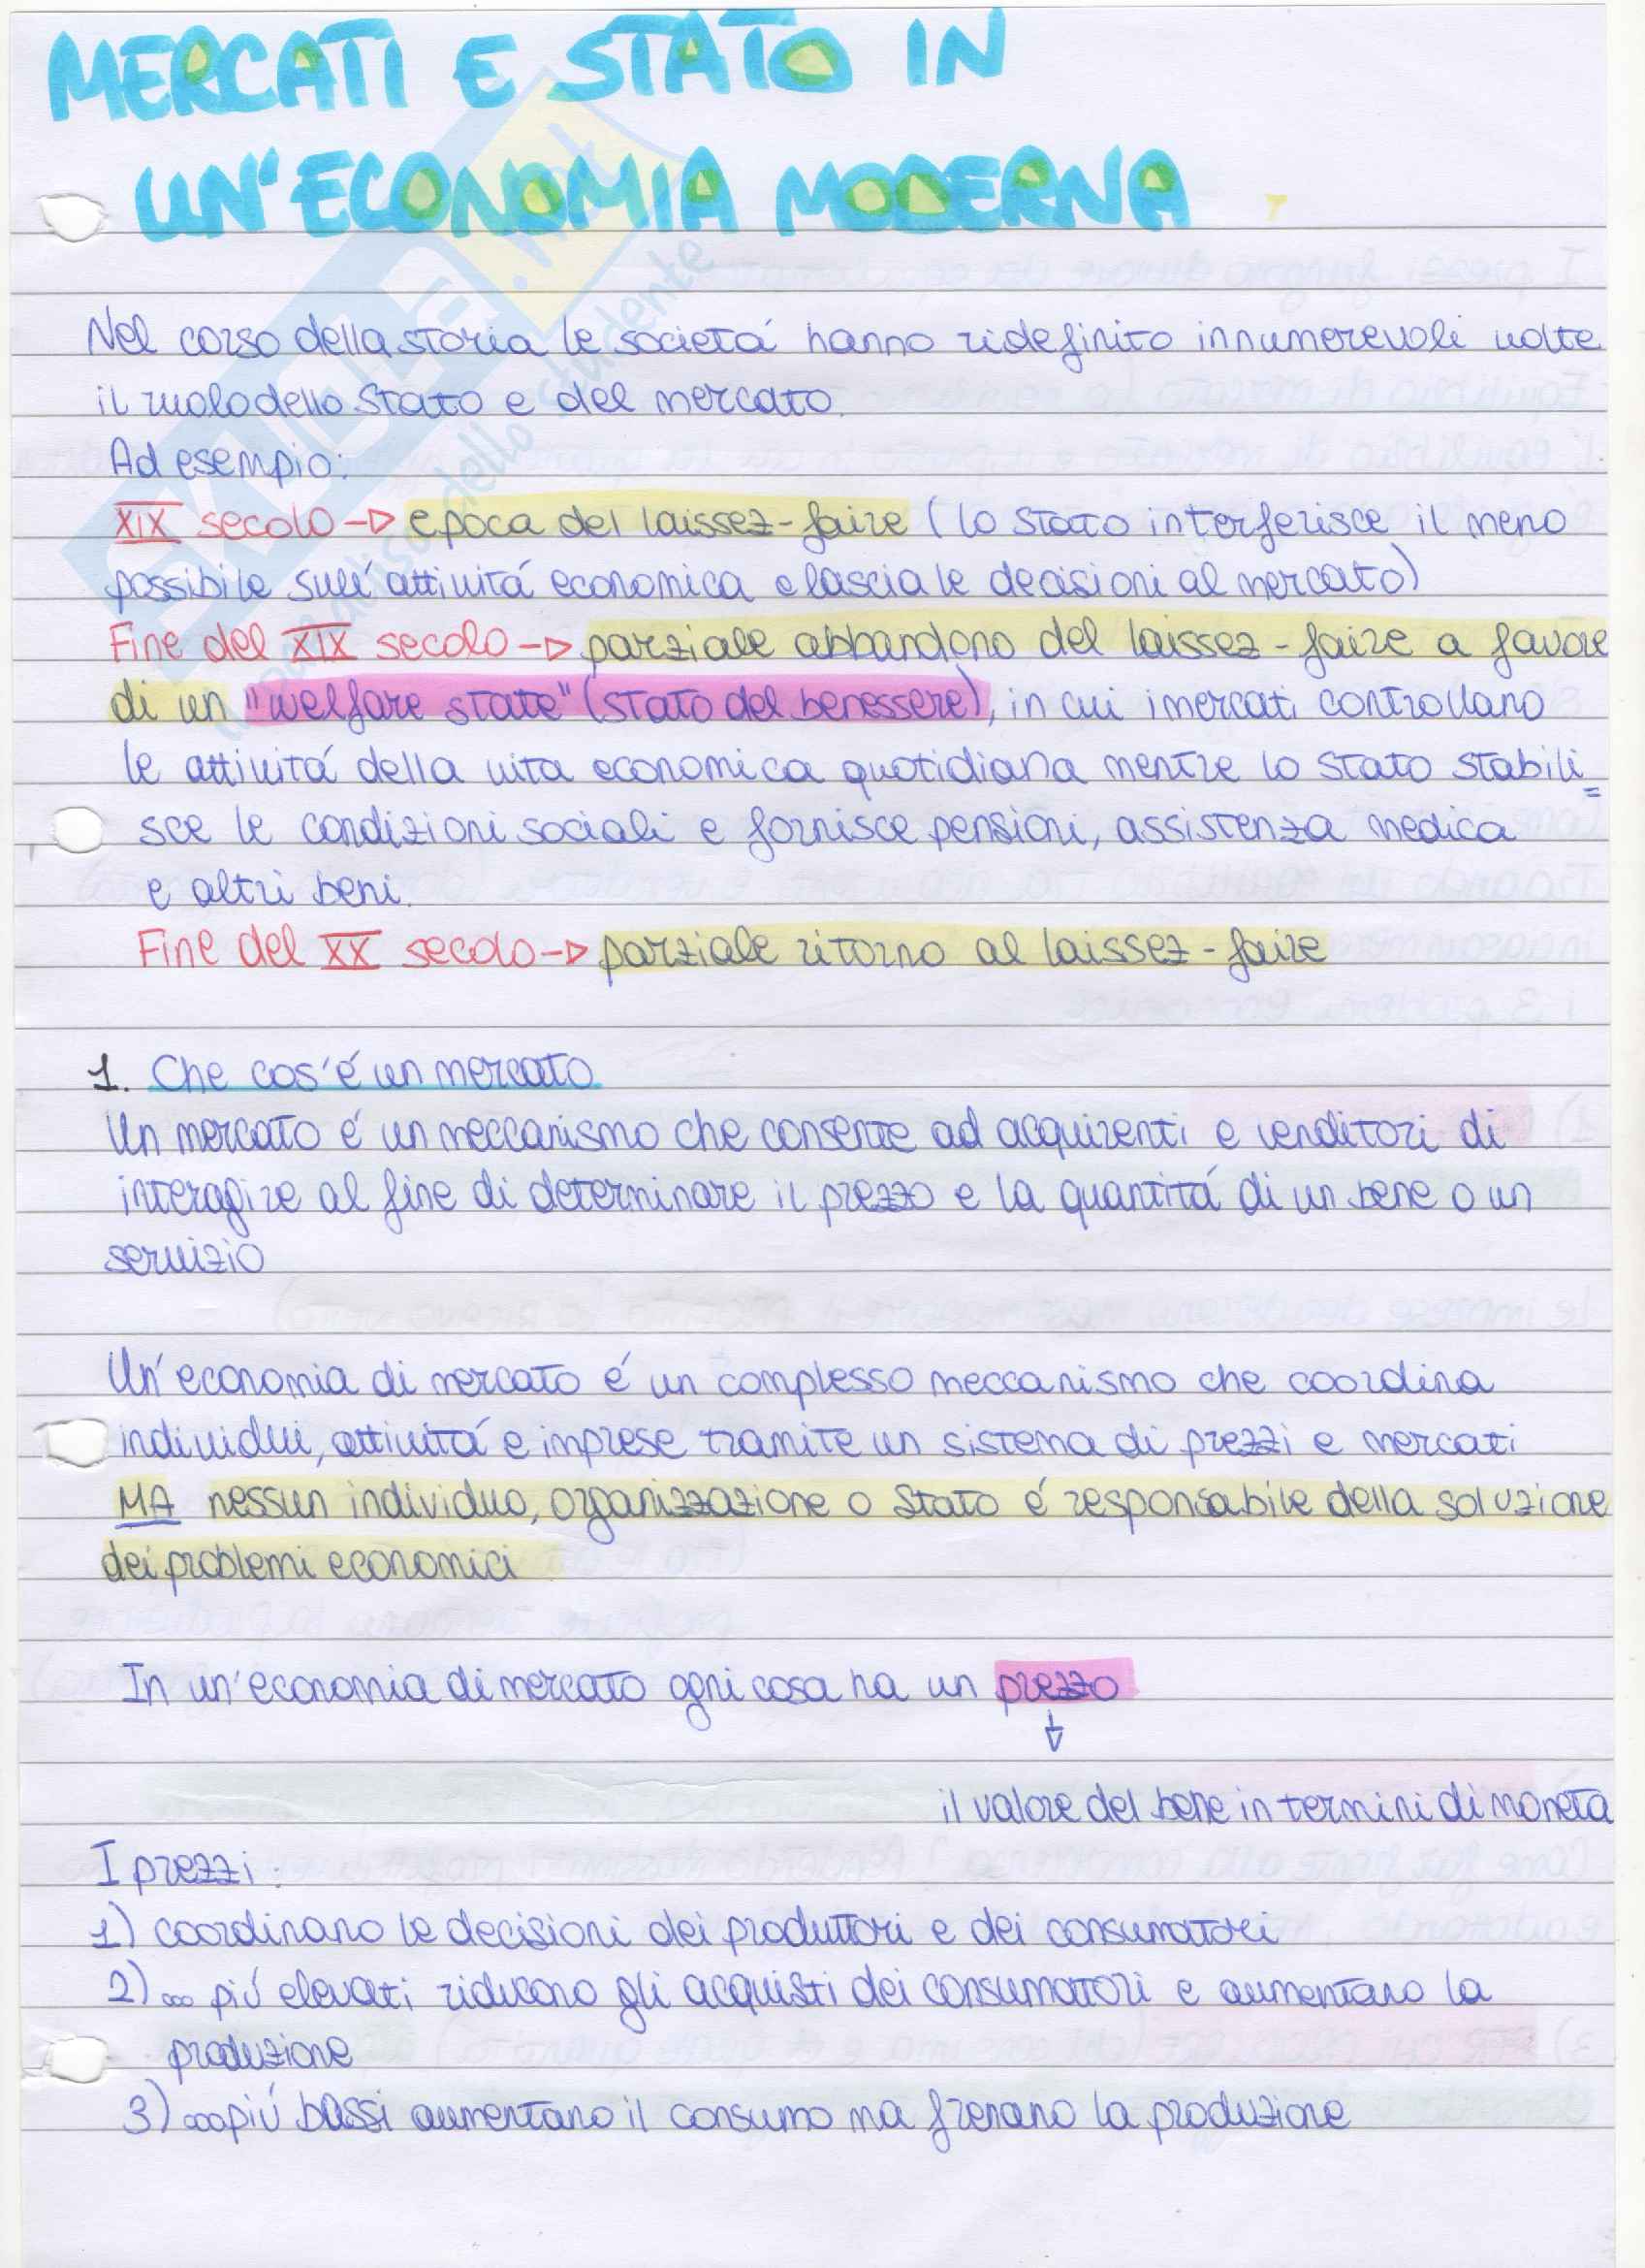 MERCATI E STATO IN
UN'ECONOMIA MODERNA
Nel corso della storia le societá hanno ridefinito innumerevoli volte
il ruolo dello Stato e del mercato.
Ad esempio:
XIX secolo → epoca del laissez-faire (lo Stato interferisce il meno
possibile sull'attivitá economica e lascia le decisioni al mercato)
Fine del XIX secolo → parziale abbandono del laissez-faire a favore
di un "welfare state" (stato del benessere), in cui i mercati controllano
le attivitá della vita economica quotidiana mentre lo Stato stabili=
sce le condizioni sociali e fornisce pensioni, assistenza medica
e altri beni.
Fine del XX secolo → parziale ritorno al laissez-faire
1. Che cos'é un mercato
Un mercato é un meccanismo che consente ad acquirenti e venditori di
interagire al fine di determinare il prezzo e la quantitá di un bene o un
servizio
Un'economia di mercato é un complesso meccanismo che coordina
individui, attivitá e imprese tramite un sistema di prezzi e mercati
MA nessun individuo, organizzazione o Stato é responsabile della soluzione
dei problemi economici
In un'economia di mercato ogni cosa ha un prezzo
↓
il valore del bene in termini di moneta
I prezzi:
1) coordinano le decisioni dei produttori e dei consumatori
2) ... piú elevati riducono gli acquisti dei consumatori e aumentano la
produzione
3) ... piú bassi aumentano il consumo ma frenano la produzione
SKUOLA.net
dello studente